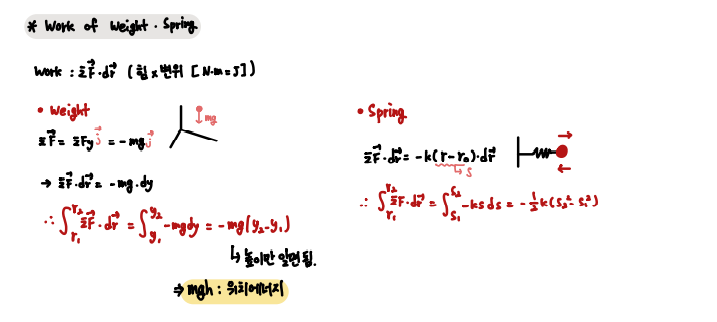 * Work of Weight · Spring
Work : ΣF⃗·dr⃗ (힘 x 변위 [N·m = J])
• Weight
mg
ΣF⃗ = ΣFy j⃗ = -mg j⃗
→ ΣF⃗·dr⃗ = -mg·dy
∴ ∫_{r₁}^{r₂} ΣF⃗·dr⃗ = ∫_{y₁}^{y₂} -mgdy = -mg(y₂-y₁)
↳ 높이만 알면 됨.
⇒ mgh : 위치에너지
• Spring
ΣF⃗·dr⃗ = -k(r-r₀)·dr⃗
↳ s
∴ ∫_{r₁}^{r₂} ΣF·dr⃗ = ∫_{s₁}^{s₂} -ks ds = -½k(s₂²-s₁²)